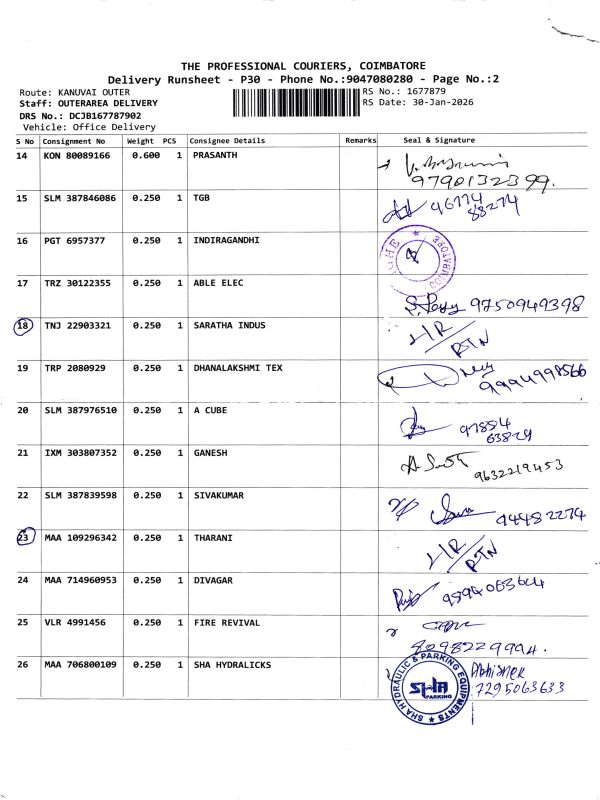 THE PROFESSIONAL COURIERS, COIMBATORE
Delivery Runsheet - P30 - Phone No.:9047080280 - Page No.:2
Route: KANUVAI OUTER RS No.: 1677879
Staff: OUTERAREA DELIVERY RS Date: 30-Jan-2026
DRS No.: DCJB167787902
Vehicle: Office Delivery
S No Consignment No Weight PCS Consignee Details Remarks Seal & Signature
14 KON 80089166 0.600 1 PRASANTH
9790132399.
15 SLM 387846086 0.250 1 TGB
96774
88274
16 PGT 6957377 0.250 1 INDIRAGANDHI
COIMBATORE
17 TRZ 30122355 0.250 1 ABLE ELEC
9750949398
18 TNJ 22903321 0.250 1 SARATHA INDUS
RTN
19 TRP 2080929 0.250 1 DHANALAKSHMI TEX
9994998566
20 SLM 387976510 0.250 1 A CUBE
97854
63829
21 IXM 303807352 0.250 1 GANESH
9632219453
22 SLM 387839598 0.250 1 SIVAKUMAR
94482274
23 MAA 109296342 0.250 1 THARANI
RTN
24 MAA 714960953 0.250 1 DIVAGAR
25 VLR 4991456 0.250 1 FIRE REVIVAL
8098229994.
26 MAA 706800109 0.250 1 SHA HYDRALICKS
SHA HYDRAULIC & PARKING EQUIPMENTS
SHA
PARKING
Abhishek
7295063633